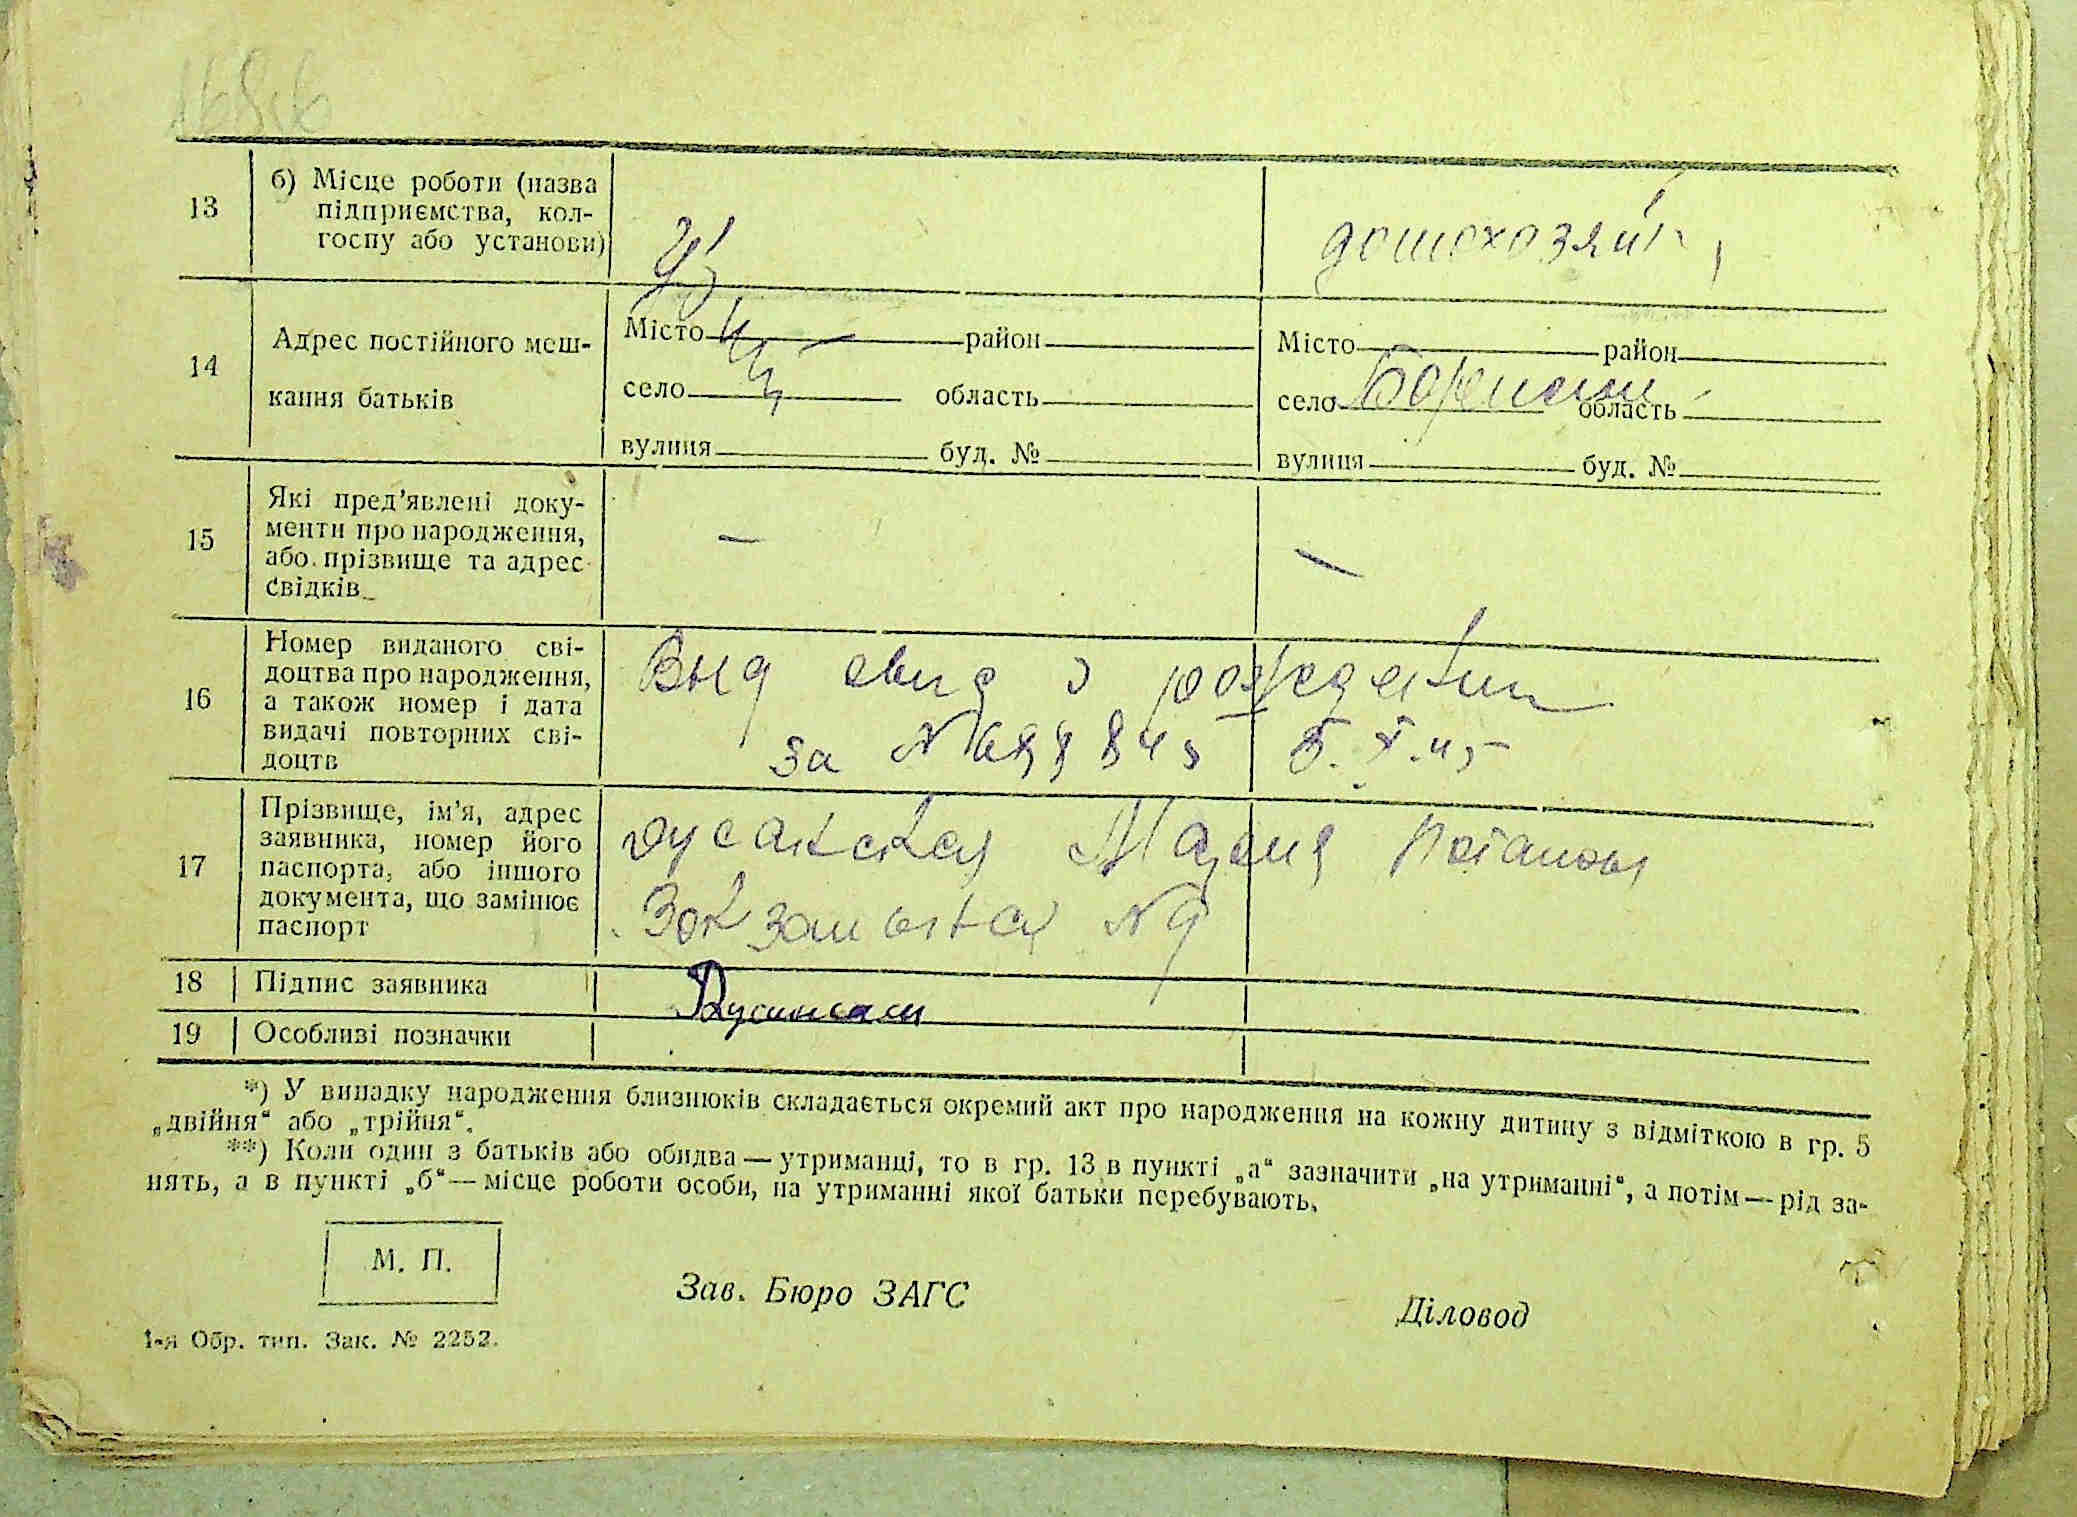 13
б) Місце роботи (назва
підприємства, кол-
госпу або установи)
домохозяйк
14
Адрес постійного меш-
кання батьків
Місто район
село область
вулиця буд. №
Місто район
село область
вулиця буд. №
15
Які пред'явлені доку-
менти про народження,
або прізвище та адрес
свідків
—
—
16
Номер виданого сві-
доцтва про народження,
а також номер і дата
видачі повторних сві-
доцтв
Выд свид о рождении
за №
17
Прізвище, ім'я, адрес
заявника, номер його
паспорта, або іншого
документа, що замінює
паспорт
Мария
№ 9
18
Підпис заявника
19
Особливі позначки
*) У випадку народження близнюків складається окремий акт про народження на кожну дитину з відміткою в гр. 5
„двійня“ або „трійня“.
**) Коли один з батьків або обидва — утриманці, то в гр. 13 в пункті „а“ зазначити „на утриманні“, а потім — рід за-
нять, а в пункті „б“ — місце роботи особи, на утриманні якої батьки перебувають.
М. П.
Зав. Бюро ЗАГС
Діловод
1-я Обр. тип. Зак. № 2252.